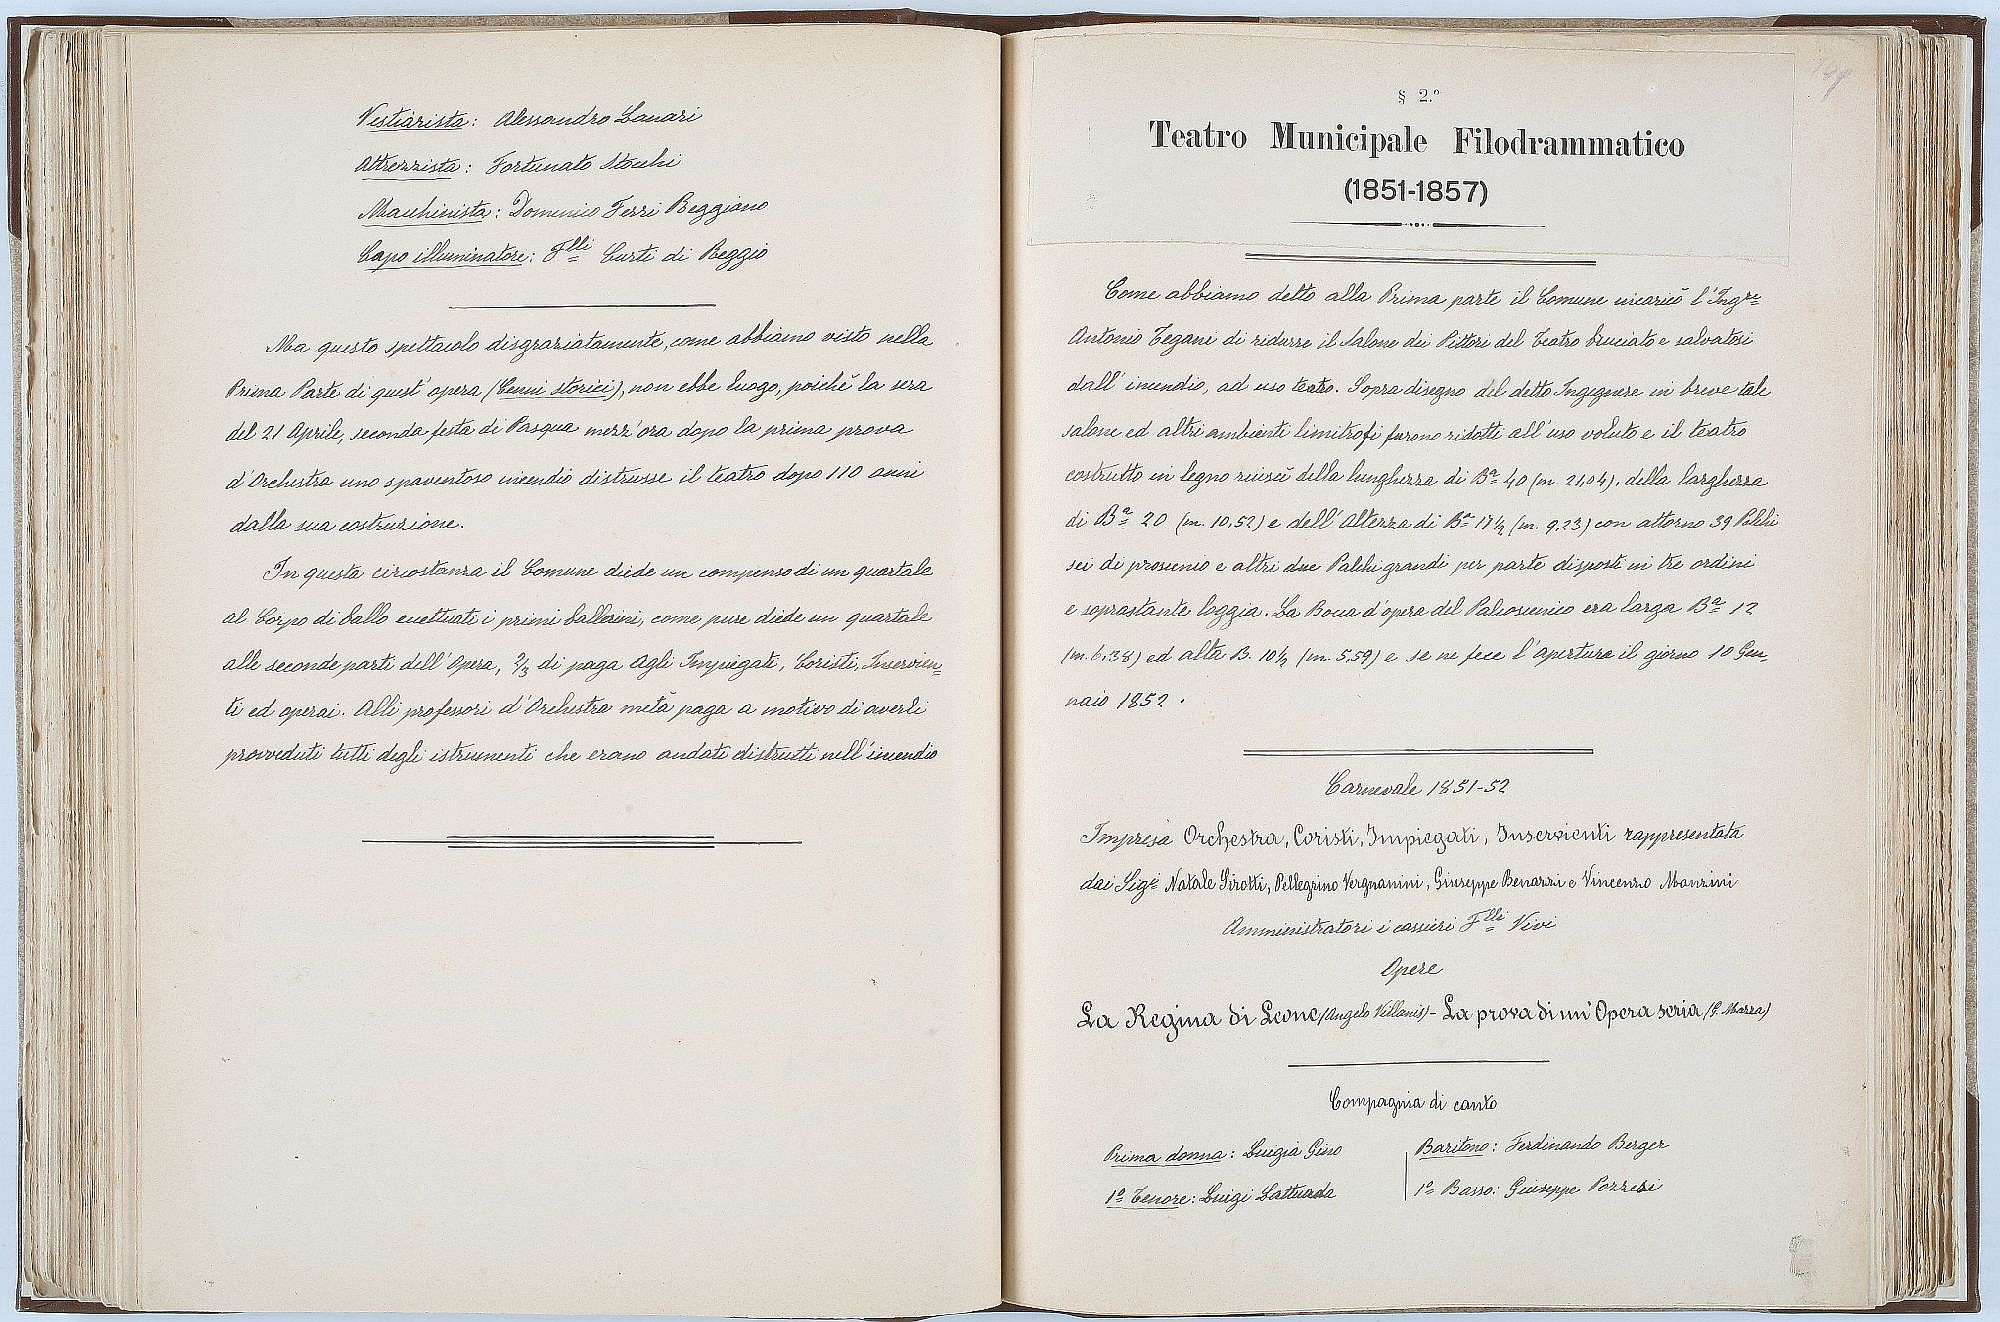 Vestiarista: Alessandro Lanari
Attrezzista: Fortunato Stocchi
Macchinista: Domenico Ferri Reggiano
Capo illuminatore: F.lli Curti di Reggio
Ma questo spettacolo disgraziatamente, come abbiamo visto nella
Prima Parte di quest' opera (Cenni storici), non ebbe luogo, poichè la sera
del 21 Aprile, seconda festa di Pasqua mezz'ora dopo la prima prova
d'Orchestra uno spaventoso incendio distrusse il teatro dopo 110 anni
dalla sua costruzione.
In questa circostanza il Comune diede un compenso di un quartale
al Corpo di ballo eccettuati i primi ballerini, come pure diede un quartale
alle seconde parti dell' Opera, 2/3 di paga agli Impiegati, Coristi, Inservien=
ti ed operai. Alli professori d' Orchestra metà paga a motivo di averli
provveduti tutti degli istrumenti che erano andati distrutti nell' incendio
§ 2.º
Teatro Municipale Filodrammatico
(1851-1857)
Come abbiamo detto alla Prima parte il Comune incaricò l'Ingre
Antonio Tegani di ridurre il Salone dei Pittori del Teatro bruciato e salvatosi
dall' incendio, ad uso teatro. Sopra disegno del detto Ingegnere in breve tale
salone ed altri ambienti limitrofi furono ridotti all' uso voluto e il teatro
costrutto in legno riuscì della lunghezza di Ba 40 (m 21,04), della larghezza
di Ba 20 (m. 10,52) e dell' Altezza di Ba 17½ (m. 9,23) con attorno 39 Palchi
sei di proscenio e altri due Palchi grandi per parte disposti in tre ordini
e soprastante loggia. La Bocca d'opera del Palcoscenico era larga Ba 12
(m. 6,38) ed alta B. 10½ (m. 5,59) e se ne fece l' apertura il giorno 10 Gen=
naio 1852.
Carnevale 1851-52
Impresa Orchestra, Coristi, Impiegati, Inservienti rappresentata
dai Sigi Natale Sirotti, Pellegrino Vergnanini, Giuseppe Benazzi e Vincenzo Manzini
Amministratori i cassieri F.lli Vivi
Opere
La Regina di Leone (Angelo Villanis) - La prova di un' Opera seria (G. Mazza)
Compagnia di canto
Prima donna: Luigia Gino
1º Tenore: Luigi Lattuada
Baritono: Ferdinando Berger
1º Basso: Giuseppe Pozzesi